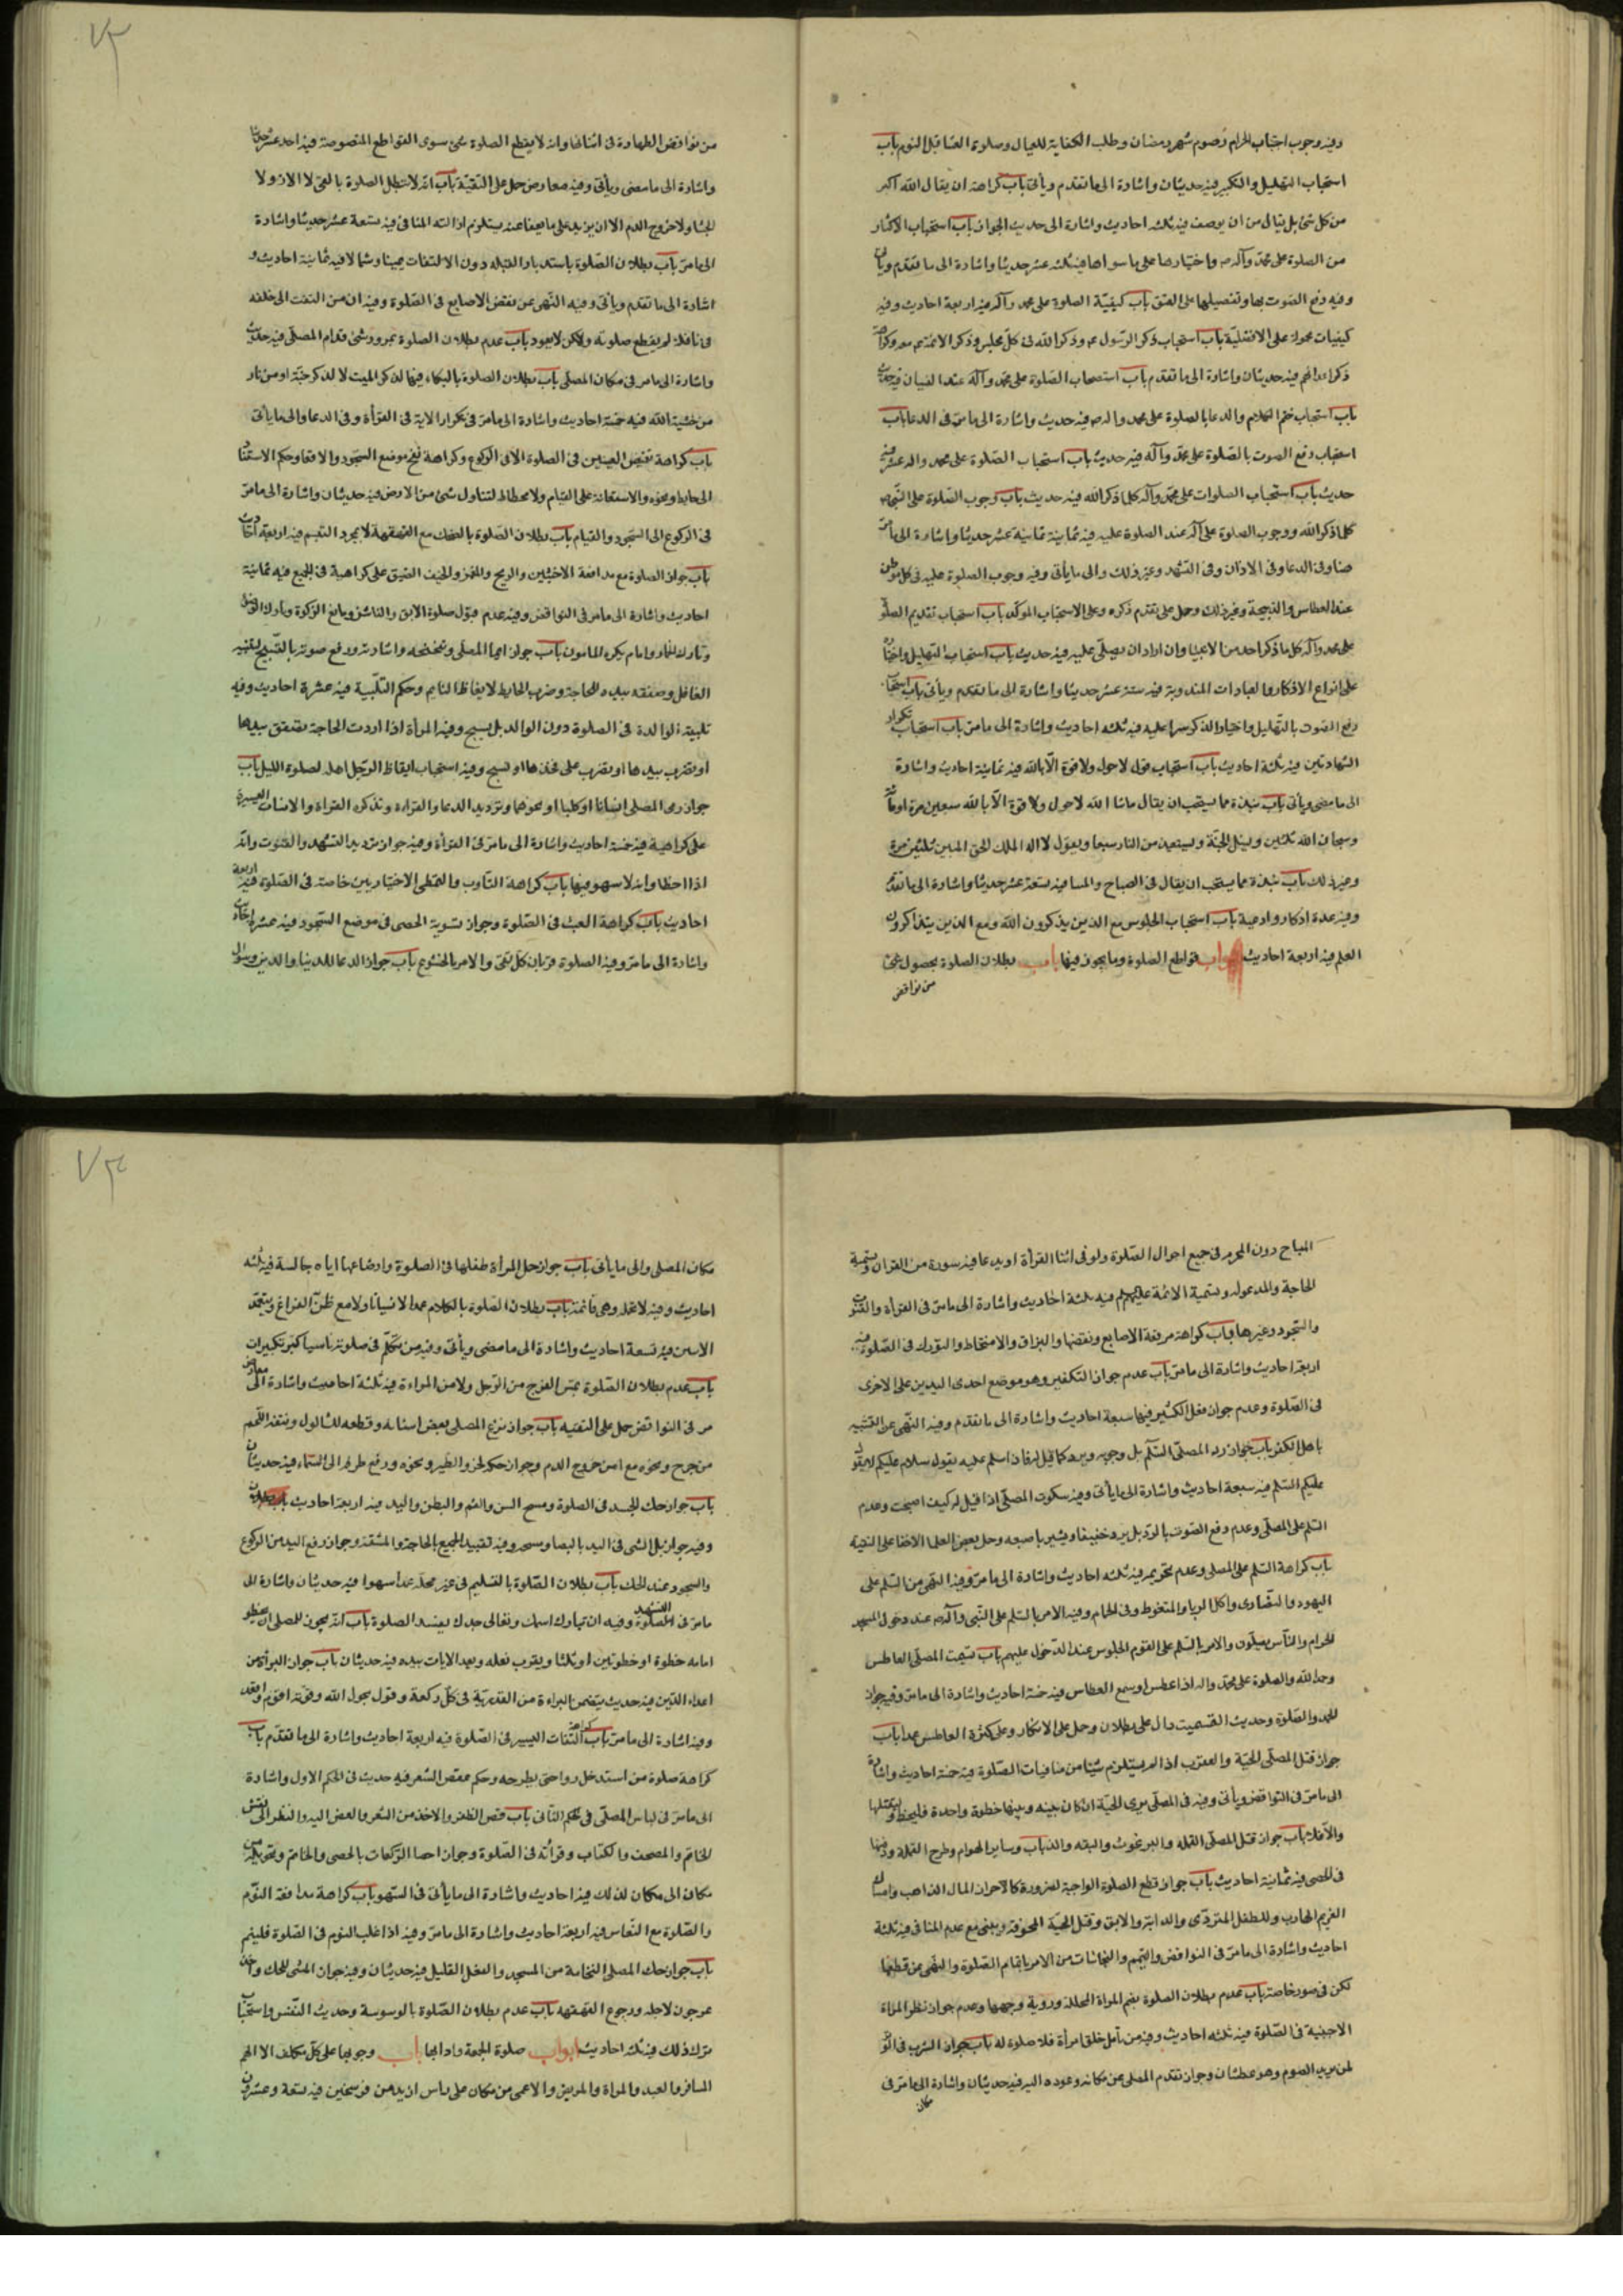 وفيه وجوب اجتناب الحرام وصوم شهر رمضان وطلب الكفاية للعيال وصلوة العشا قبل النوم باب
استحباب التهليل والتكبير فيه حديثان واشارة الى ما تقدم وياتى باب كراهة ان يقال الله اكبر
من كل شئ بل يقال من ان يوصف فيه ثلثه احاديث واشارة الى حديث الجواز باب استحباب الاكثار
من الصلوة على محمد وآله واختيارها على ما سواها فيه ثلثه عشر حديثا واشارة الى ما تقدم وياتى
وفيه رفع الصوت بها وتفصيلها على العتق باب كيفيّة الصلوة على محمد وآله فيه اربعة احاديث وفيه
كيفيات محمولة على الافضلية باب استحباب ذكر الرسول وذكر الله فى كل مجلس وذكر الائمة معه وكراهة
ذكر اعدائهم فيه حديثان واشارة الى ما تقدم باب استحباب الصلوة على محمد وآله عند النسيان فيه حديث
باب استحباب ختم الكلام والدعا بالصلوة على محمد واله فيه حديث واشارة الى ما مر فى الدعا باب
استحباب رفع الصوت بالصلوة على محمد وآله فيه حديث باب استحباب الصلوة على محمد واله عشرا فيه
حديث باب استحباب الصلوات على محمد وآله كلما ذكر الله فيه حديث باب وجوب الصلوة على النبى
كلما ذكر الله ووجوب الصلوة على آله عند الصلوة عليه فيه ثمانية عشر حديثا واشارة الى ما مر
هنا وفى الدعا وفى الاذان وفى التشهد وغير ذلك والى ما يأتى وفيه وجوب الصلوة عليه فى كل موطن
عند العطاس والذبيحة وغير ذلك وحمل على تقدم ذكره وعلى الاستحباب المؤكد باب استحباب تقديم الصلوة
على محمد وآله كل ما ذكر احد من الانبيا وان اراد ان يصلى عليه فيه حديث باب استحباب التهليل واختياره
على انواع الاذكار والعبادات المندوبة فيه ستة عشر حديثا واشارة الى ما تقدم وياتى باب استحباب
رفع الصوت بالتهليل واختيار الذكر سرا عليه فيه ثلثه احاديث واشارة الى ما مر باب استحباب تكرار
الشهادتين فيه ثلثة احاديث باب استحباب قول لا حول ولا قوة الا بالله فيه ثمانية احاديث واشارة
الى ما مضى وياتى باب نبذة مما يستحب ان يقال ماشا الله لا حول ولا قوة الا بالله سبعين مرة
وسبحان الله ثلثين ويسئل الجنّة ويستعيذ من النار سبعا ويقول لا اله الا الله الملك الحق المبين ثلثين مرة
وغير ذلك باب نبذة مما يستحب ان يقال فى الصباح والمسا فيه تسعة عشر حديثا واشارة الى ما تقدم
وفيه عدة اذكار وادعية باب استحباب الجلوس مع الذين يذكرون الله ومع الذين يتذاكرون
العلم فيه اربعة احاديث ابواب قواطع الصلوة وما يجوز فيها باب بطلان الصلوة بحصول شئ
من نواقض
٧٣
من نواقض الطهارة فى اثنائها وانه لا يقطع الصلوة شئ سوى القواطع المنصوصة فيه احد عشر حديثا
واشارة الى ما مضى وياتى وفيه معارض حمل على التقيّة باب انه لا تبطل الصلوة بالقئ ولا الاز ولا
الجشا ولا خروج الدم الا ان يزيد على ما يعفا عنه ويستلزم ازالته المنافى فيه تسعة عشر حديثا واشارة
الى ما مر باب بطلان الصلوة باستدبار القبلة دون الالتفات يمينا وشمالا فيه ثمانية احاديث و
اشارة الى ما تقدم وياتى وفيه النهى عن نقض الاصابع فى الصلوة وفيه ان من التفت الى خلفه
فى نافلة لم يقطع صلوته ولكن لا يعود باب عدم بطلان الصلوة بمرور شئ قدام المصلى فيه حديث
واشارة الى ما مر فى مكان المصلى باب بطلان الصلوة بالبكاء فيها لذكر الميت لا لذكر جنّة او من نار
من خشية الله فيه خمسة احاديث واشارة الى ما مر فى تكرار الاية فى القرأة وفى الدعا والى ما يأتى
باب كراهة تغميض العينين فى الصلوة الا فى الركوع وكراهة نفخ موضع السجود والاقعا وحكم الاستناد
الى حايط ونحوه والاستعانة على القيام ولا محطاط لتناول شئ من الارض فيه حديثان واشارة الى ما مر
فى الركوع الى السجود والقيام باب بطلان الصلوة بالضحك مع القهقهة لا بمجرد التبسم فيه اربعة احاديث
باب جواز الصلوة مع مدافعة الاخبثين والريح والغمز والخف الضيق على كراهية فى الجميع فيه ثمانية
احاديث واشارة الى ما مر فى النواقض وفيه عدم قبول صلوة الابق والناشز ومانع الزكوة وتارك الوضوء
وتارك الخمار وامام يكره المامون باب جواز ايما المصلى وتنحنحه واشارته ورفع صوته بالتسبيح لتنبيه
الغافل وصفقه بيده للحاجة وضرب الحايط لايقاظ النايم وحكم التلبية فيه عشرة احاديث وفيه
تلبية الوالدة فى الصلوة دون الوالد بل يسبح وفيه المرأة اذا اردت الحاجة تصفق بيدها
او تضرب بيدها او تضرب على فخذها او تسبح وفيه استحباب ايقاظ الرجل اهله لصلوة الليل باب
جواز رمى المصلى انسانا او كلبا او نحوهما وترديد الدعا والقراءة وتذكره القراءة والانسات اليسيرة
على كراهية فيه خمسة احاديث واشارة الى ما مر فى القرأة وفيه جواز ترديد التشهد والقنوت وانه
اذا اخطا وانه لا سهو فيها باب كراهة التثاوب والتمطى الاختياريين خاصة فى الصلوة فيه اربعة
احاديث باب كراهة العبث فى الصلوة وجواز تسوية الحصى فى موضع السجود فيه عشرة احاديث
واشارة الى ما مر وفيه الصلوة قربان كل تقى والامر بالخشوع باب جواز الدعا للدنيا والدين
المباح دون المحرم فى جميع احوال الصلوة ولو فى اثنا القرأة او يدعا فيه سورة من القران وتسمية
الحاجة والمدعو له وتسمية الائمة عليهم فيه ثلثة احاديث واشارة الى ما مر فى القرأة والقنوت
والسجود وغيرها باب كراهة فرقعة الاصابع ونقضها والبزاق والامتخاط والتورك فى الصلوة فيه
اربعة احاديث واشارة الى ما مر باب عدم جواز التكفير وهو موضع احدى اليدين على الاخرى
فى الصلوة وعدم جواز فعل الكثير فيها سبعة احاديث واشارة الى ما تقدم وفيه النهى عن التشبه
باهل الكفر باب جواز رد المصلى السلم بل وجوبه ويرد كما قيل له فان سلم عليه يقول سلام عليكم لا يقول
عليكم السلم فيه سبعة احاديث واشارة الى ما يأتى وفيه سكوت المصلى اذا قيل له كيف اصبحت وعدم
السلم على المصلى وعدم رفع الصوت بالرد بل يرد خفيفا ويشير باصبعه وحمل بعض العلما الاخفا على التقية
باب كراهة السلم على المصلى وعدم تحريمه فيه ثلثه احاديث واشارة الى ما مر وفيه النهى من السلم على
اليهود والنصارى واكل الربا والمتغوط وفى الحمام وفيه الامر بالسلم على النبى وآله عند دخول المسجد
الحرام والناس يصلون والامر بالسلم على القوم الجلوس عند الدخول عليهم باب تسميت المصلى العاطس
وحمد لله والصلوة على محمد واله اذا عطس او سمع العطاس فيه خمسة احاديث واشارة الى ما مر وفيه جواز
الحمد والصلوة وحديث التسميت دال على بطلان وحمل على الانكار وعلى كثرة العاطس عمدا باب
جواز قتل المصلى الحية والعقرب اذا لم يستلزم شيئا من منافيات الصلوة فيه خمسة احاديث واشارة
الى ما مر فى النواقض وياتى وفيه فى المصلى يرى الحية ان كان بينه وبينها خطوة واحدة فليخط وليقتلها
والا فلا باب جواز قتل المصلى القمله والبرغوث والبقه والذباب وساير الهوام وطرح القملة ودفنها
فى الحصى فيه ثمانية احاديث باب جواز قطع الصلوة الواجبة لضرورة كالاحراز المال الذاهب وامساك
الغريم الهارب وللطفل المتردى والدابة والابق وقتل الحية المخوفة ويبنى مع عدم المنافى فيه ثلثة
احاديث واشارة الى ما مر فى النواقض والتيمم والنجاسات من الامر باتمام الصلوة والنهى عن قطعها
لكن فى صور خاصة باب عدم بطلان الصلوة بضم المراة المحللة ورؤية وجهها وعدم جواز نظر المراة
الاجنبية فى الصلوة فيه ثلثه احاديث وفيه من تأمل خلق امرأة فلا صلوة له باب جواز الشرب فى الوتر
لمن يريد الصوم وهو عطشان وجواز تقدم المصلى عن مكانه وعوده اليه فيه حديثان واشارة الى ما مر فى
مكان
٧٤
مكان المصلى والى ما ياتى باب جواز حمل المرأة طفلها فى الصلوة وارضاعها اياه جالسة فيه ثلثه
احاديث وفيه لا تحمله وهى قائمة باب بطلان الصلوة بالكلام عمدا لا نسيانا ولا مع ظن الفراغ
فيه تسعة احاديث واشارة الى ما مضى وياتى وفيه من تكلم فى صلوته ناسيا كبر تكبيرات
باب عدم بطلان الصلوة بمس الفرج من الرجل ولا من المراءة فيه ثلثة احاديث واشارة الى معارض
مر فى النواقض حمل على التقيه باب جواز نزع المصلى بعض اسنانه وقطعه للثالول ونتفه اللحم
من جرح ونحوه مع امن خروج الدم وجواز حكه خرؤ الطير ونحوه ورفع طرفه الى السماء فيه حديثان
باب جواز حك الجسد فى الصلوة ومسح السن والفم والبطن واليد فيه اربعة احاديث
وفيه جواز بل الشى فى اليد بالبصا ومسحه وفيه تقييد الجميع بالحاجة والمشقة وجواز رفع اليد من الركوع
والسجود عند الحك باب بطلان الصلوة بالتسليم فى غير محله عمدا لا سهوا فيه حديثان واشارة الى
ما مر فى التشهد وفيه ان تبارك اسمك وتعالى جدك يفسد الصلوة باب انه يجوز للمصلى ان يخطو
امامه خطوة او خطوتين او ثلثا ويقرب نعله ويعد الايات بيده فيه حديثان باب جواز البراة من
اعداء الدين فيه حديث يتضمن البراءة من القدرية فى كل ركعة وقول بحول الله وقوته اقوم واقعد
وفيه اشارة الى ما مر باب كراهة التفات اليسير فى الصلوة فيه اربعة احاديث واشارة الى ما تقدم باب
كراهة صلوة من استدخل دوا حتى يطرحه وحكم عقص الشعر فيه حديث فى الحكم الاول واشارة
الى ما مر فى لباس المصلى فى حكم الثانى باب قص الظفر والاخذ من الشعر والعض اليه والنظر الى نقش
الخاتم والمصحف والكتاب وقرائته فى الصلوة وجواز احصا الركعات بالحصى والخاتم وتحويله من
مكان الى مكان لذلك فيه احاديث واشارة الى ما ياتى فى السهو باب كراهة مدافعة النوم
والصلوة مع النعاس فيه اربعة احاديث واشارة الى ما مر وفيه اذا غلب النوم فى الصلوة فلينم
باب جواز حك المصلى النخامة من المسجد والفعل القليل فيه حديثان وفيه جواز المشى للحك واخذ
عرجون لاجله ورجوع القهقهه باب عدم بطلان الصلوة بالوسوسة وحديث النفس واستحباب
ترك ذلك فيه ثلثه احاديث ابواب صلوة الجمعة وادابها باب وجوبها على كل مكلف الا الهم
المسافر والعبد والمراة والمريض والاعمى من كان على راس ازيد من فرسخين فيه تسعة وعشرون